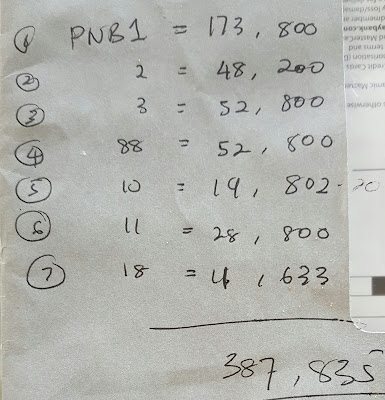 ① PNB1 = 173,800
② 2 = 48,200
③ 3 = 52,800
④ 88 = 52,800
⑤ 10 = 19,802.20
⑥ 11 = 28,800
⑦ 18 = 11,633
387,835
otherwise
terms and